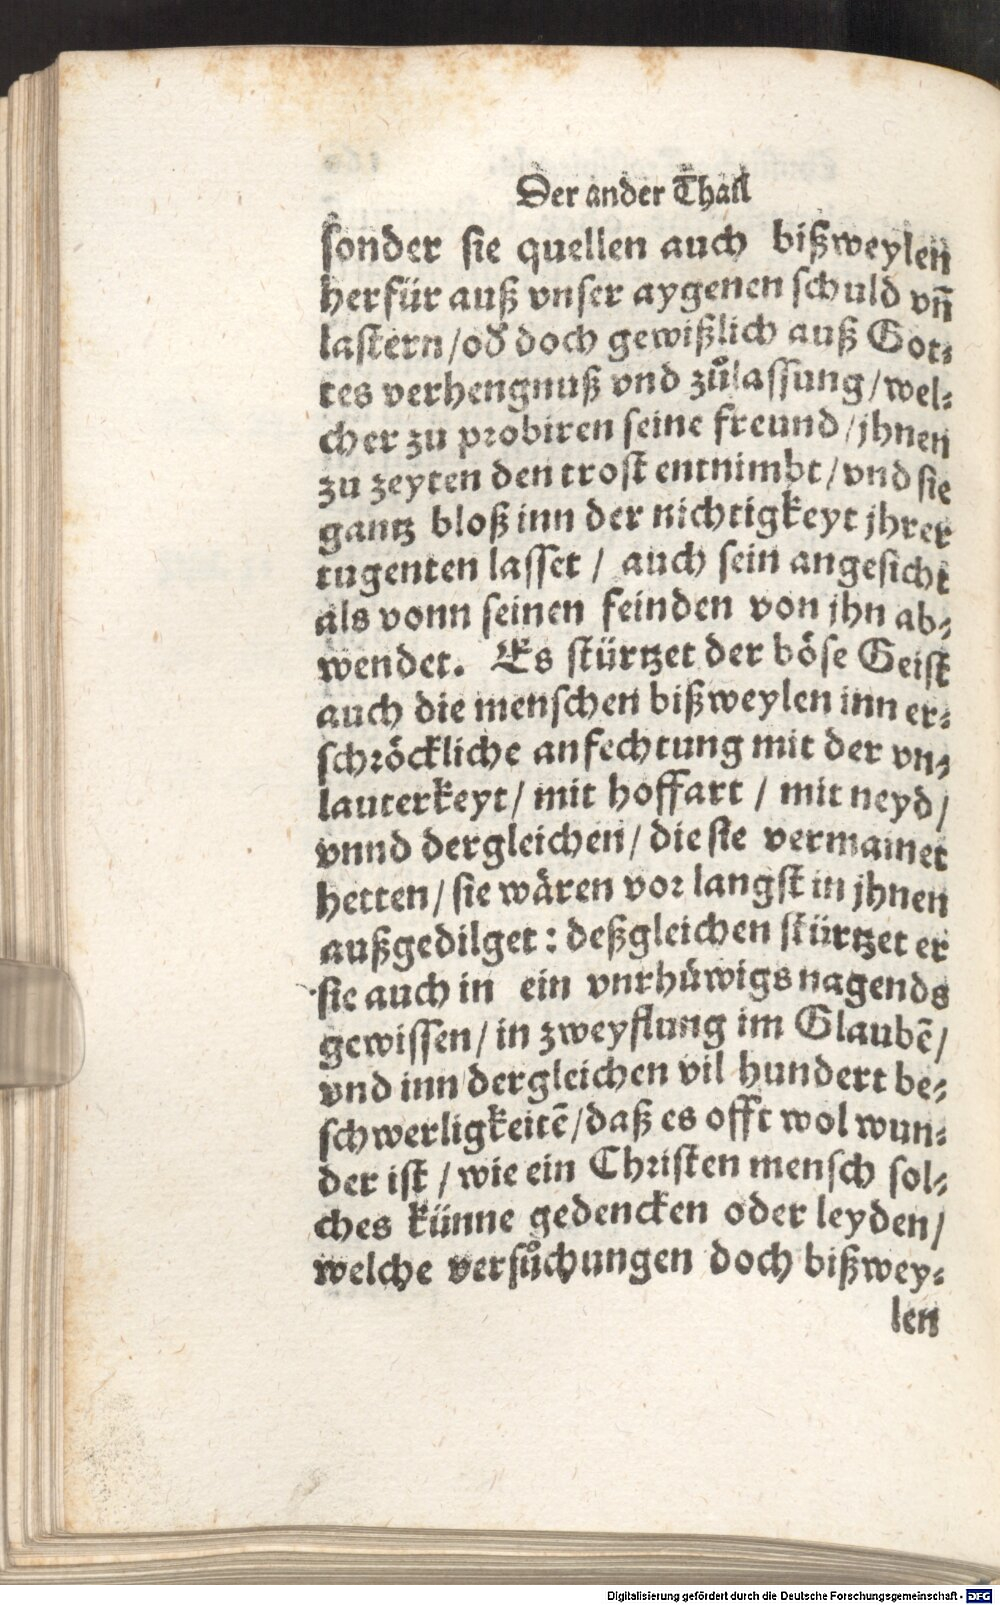 Der ander Thail
sonder sie quellen auch bißweylen
herfür auß vnser aygenen schuld vñ
lastern/od̃ doch gewißlich auß Got⸗
tes verhengnuß vnd zůlassung/wel⸗
cher zu probiren seine freund/jhnen
zu zeyten den trost entnimbt/vnd sie
gantz bloß inn der nichtigkeyt jhrer
tugenten lasset / auch sein angesicht
als vonn seinen feinden von jhn ab⸗
wendet. Es stürtzet der böse Geist
auch die menschen bißweylen inn er⸗
schröckliche anfechtung mit der vn⸗
lauterkeyt/ mit hoffart / mit neyd/
vnnd dergleichen/ die sie vermainet
hetten/ sie wären vor langst in jhnen
außgedilget: deßgleichen stürtzet er
sie auch in ein vnrhüwigs nagends
gewissen/ in zweyflung im Glaubẽ/
vnd inn dergleichen vil hundert be⸗
schwerligkeitẽ/daß es offt wol wun⸗
der ist / wie ein Christen mensch sol⸗
ches künne gedencken oder leyden/
welche versůchungen doch bißwey⸗
len
Digitalisierung gefördert durch die Deutsche Forschungsgemeinschaft - DFG